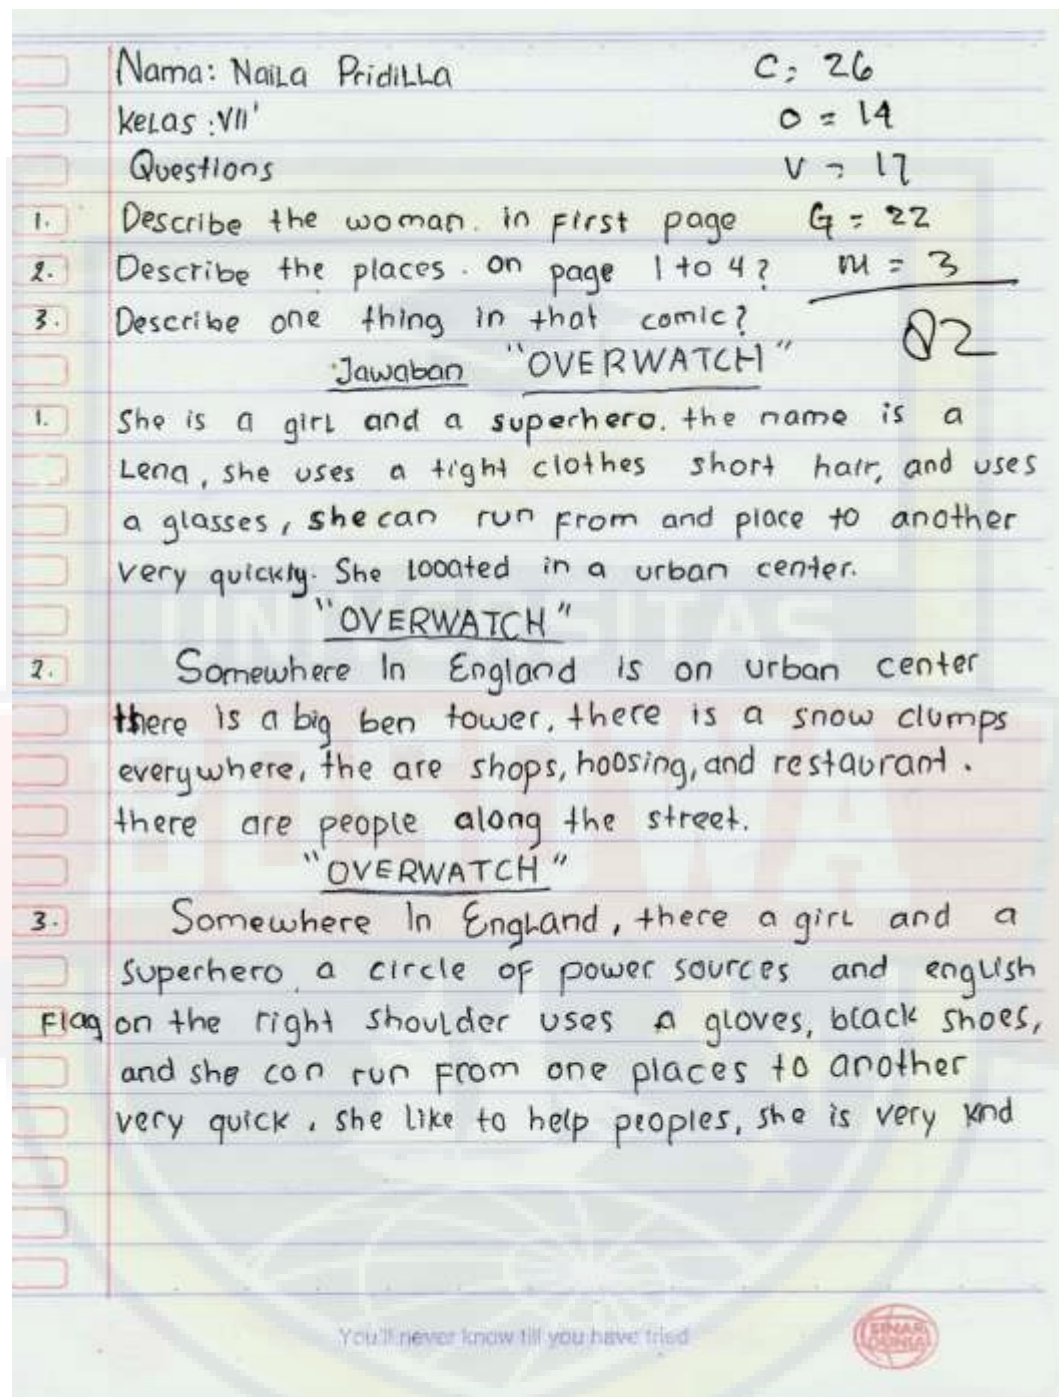 Nama: Naila Pridilla C: 26
Kelas: VII' O = 14
Questions V = 17
1. Describe the woman. in First page G = 22
2. Describe the places. on page 1 to 4? M = 3
3. Describe one thing in that comic? 82
Jawaban "OVERWATCH"
1. She is a girl and a superhero. the name is a
Lena, she uses a tight clothes short hair, and uses
a glasses, she can run from and place to another
very quickly. She looated in a urban center.
"OVERWATCH"
2. Somewhere In England is on urban center
there is a big ben tower, there is a snow clumps
everywhere, the are shops, hoosing, and restaurant.
there are people along the street.
"OVERWATCH"
3. Somewhere In England, there a girl and a
Superhero, a circle of power sources and english
Flag on the right shoulder uses a gloves, black shoes,
and she con run from one places to another
very quick, she like to help peoples, she is very knd
You'll never know till you have tried
SINAR DUNIA
UNIVERSITAS
BOSOWA